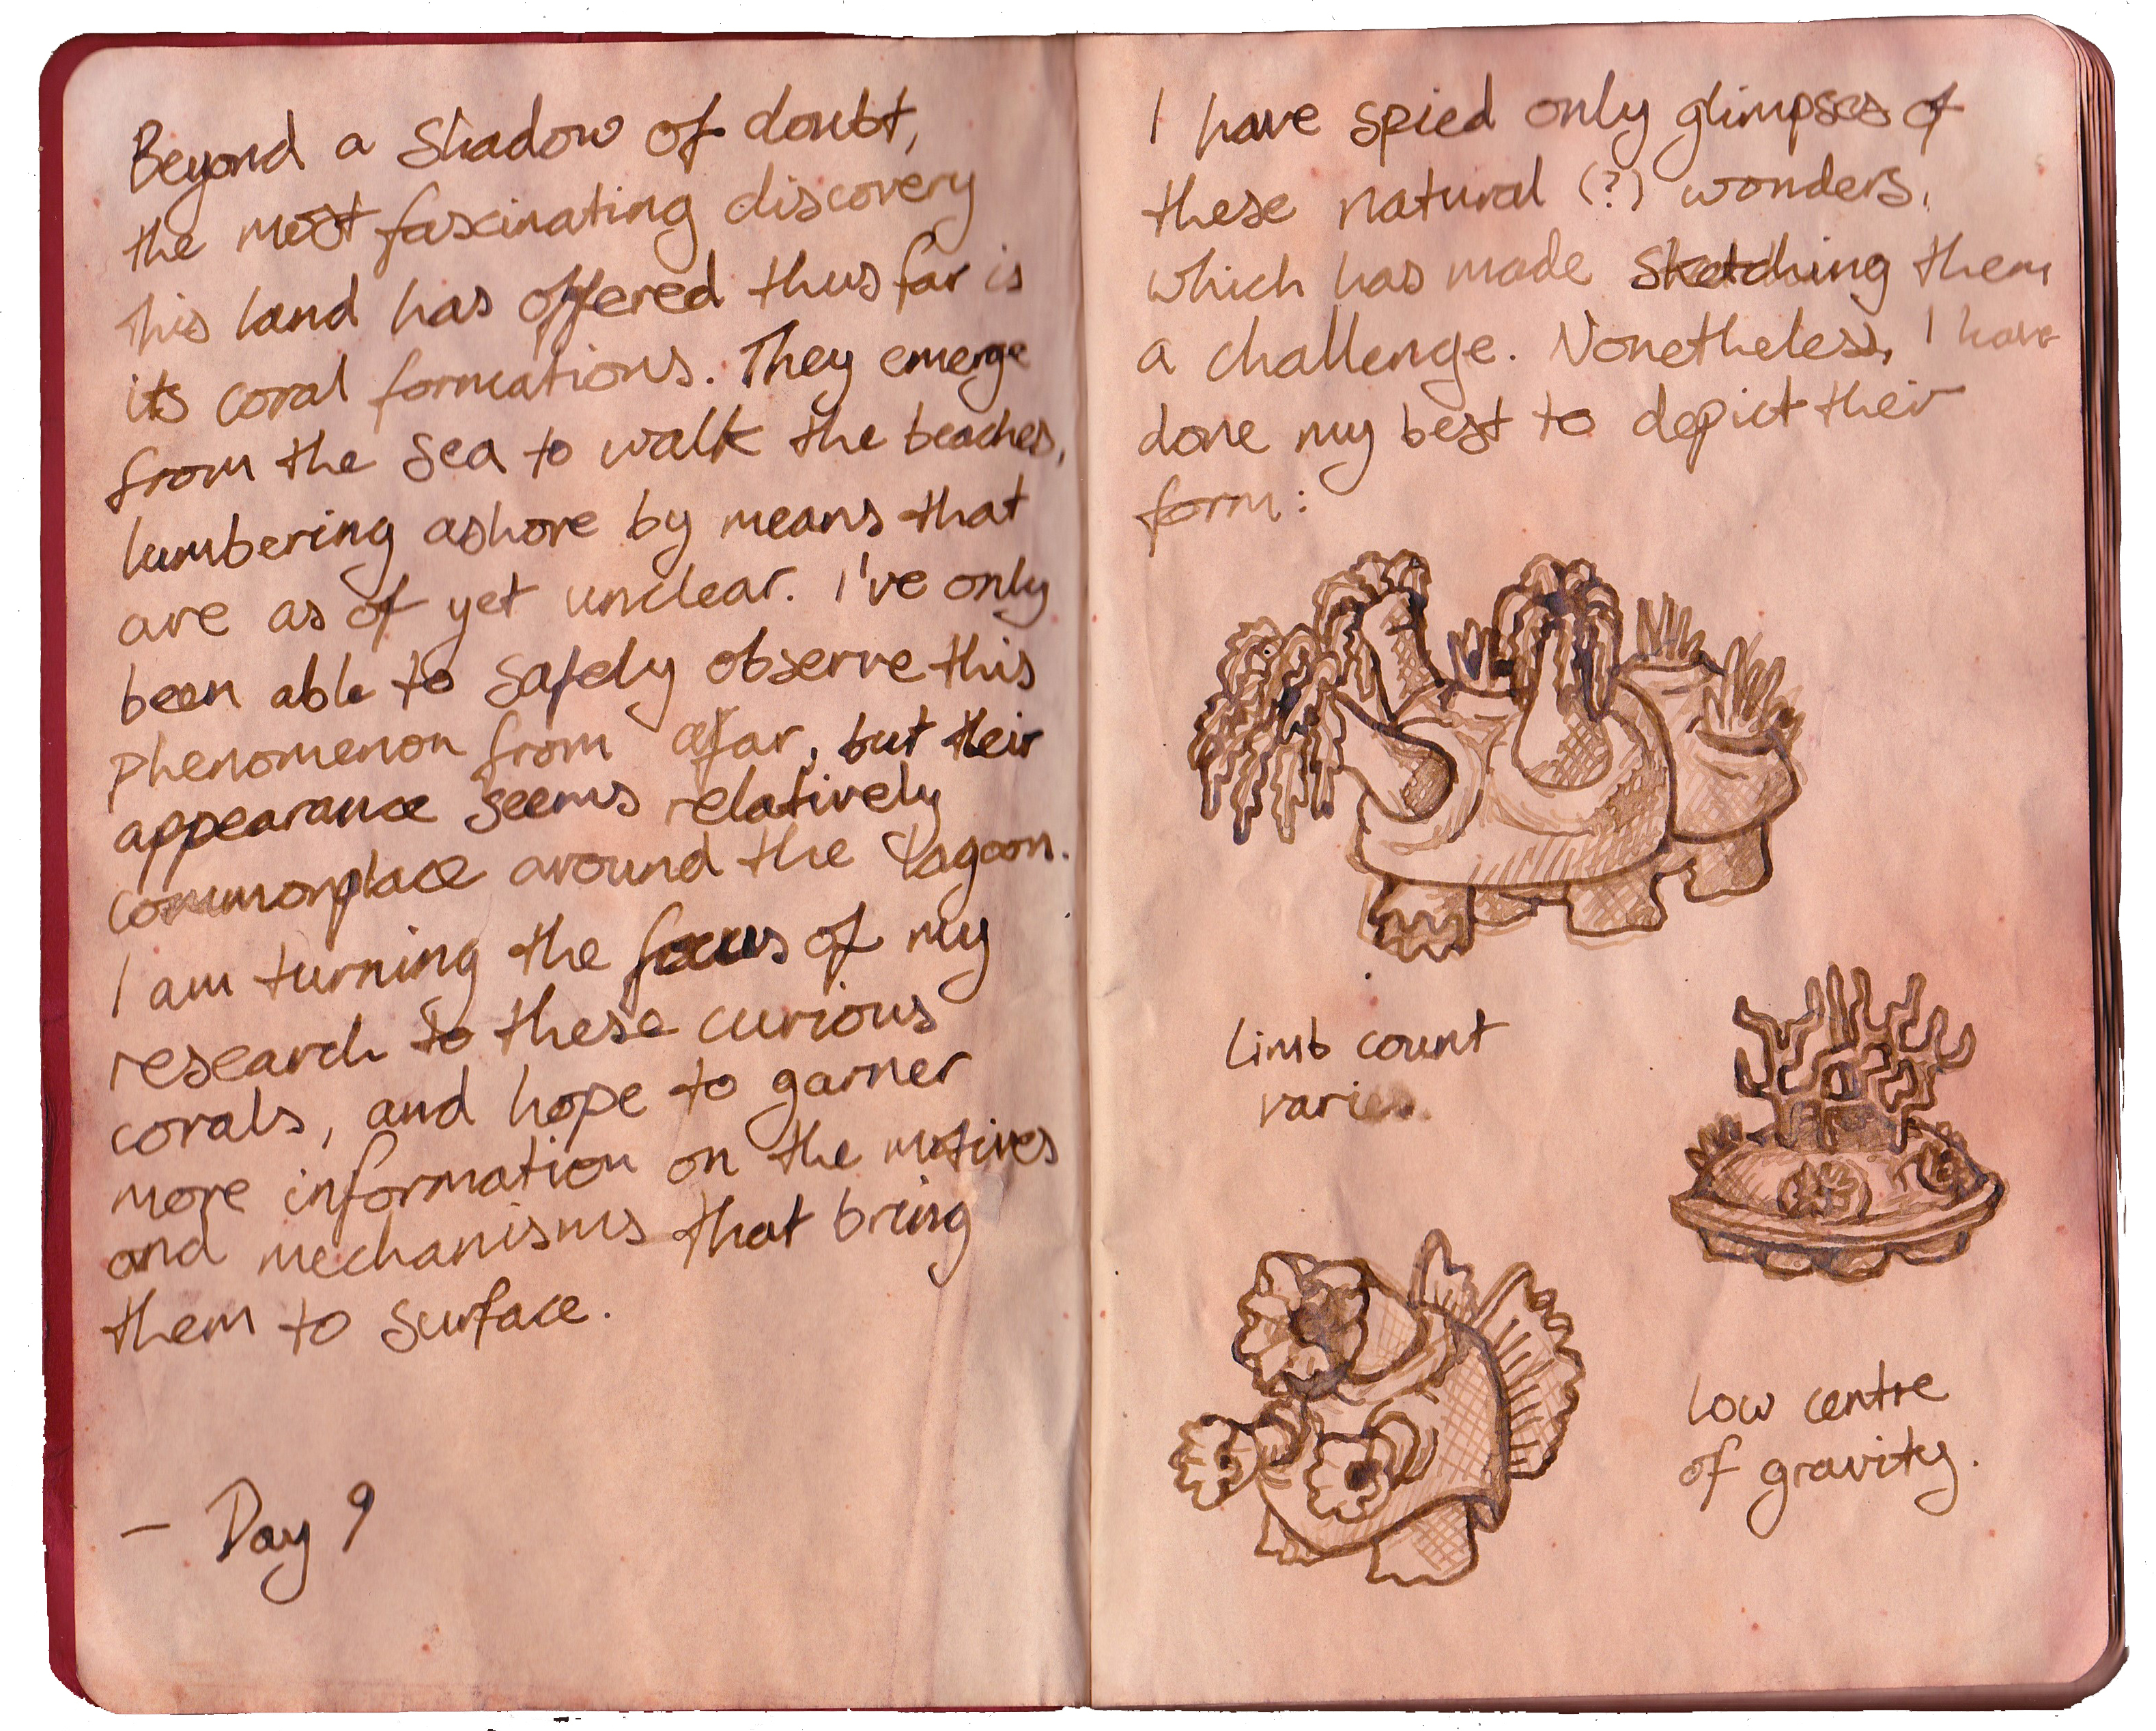 Beyond a shadow of doubt,
the most fascinating discovery
this land has offered thus far is
its coral formations. They emerge
from the sea to walk the beaches,
lumbering ashore by means that
are as of yet unclear. I've only
been able to safely observe this
phenomenon from afar, but their
appearance seems relatively
commonplace around the lagoon.
I am turning the focus of my
research to these curious
corals, and hope to garner
more information on the motives
and mechanisms that bring
them to surface.
– Day 9
I have spied only glimpses of
these natural (?) wonders,
which has made sketching them
a challenge. Nonetheless, I have
done my best to depict their
form:
limb count
varies.
low centre
of gravity.